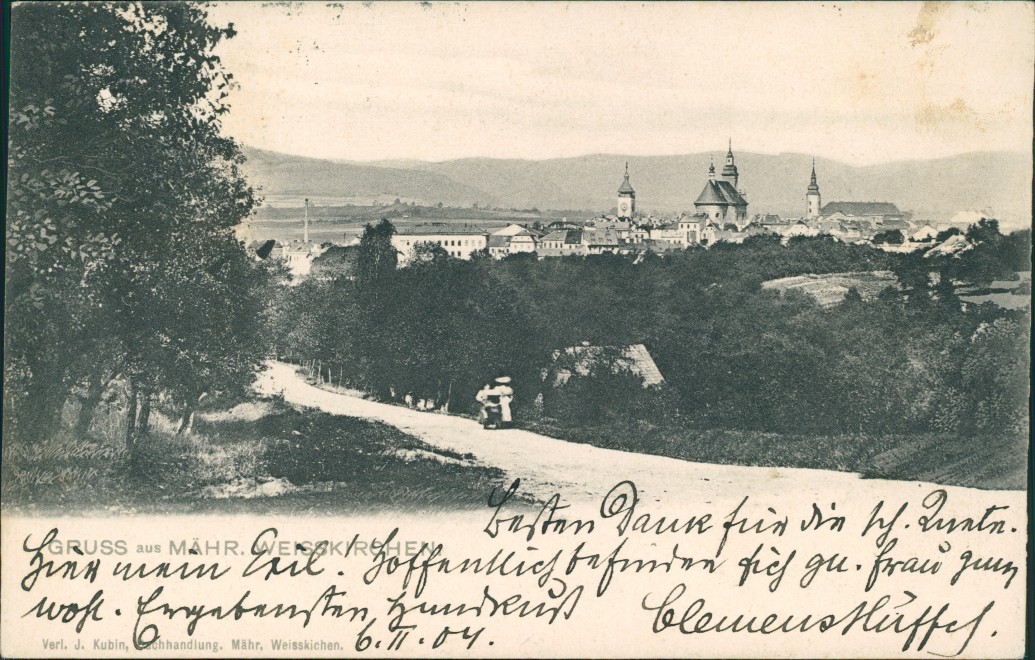 Besten Dank für die sch. Karte.
GRUSS aus MÄHR. WEISSKIRCHEN.
Hier mein Exil! Hoffentlich befinden sich gn. Frau ganz
wohl. Ergebensten Handkuß
Clemens
6.II.04.
Verl. J. Kubin, Buchhandlung. Mähr, Weisskichen.